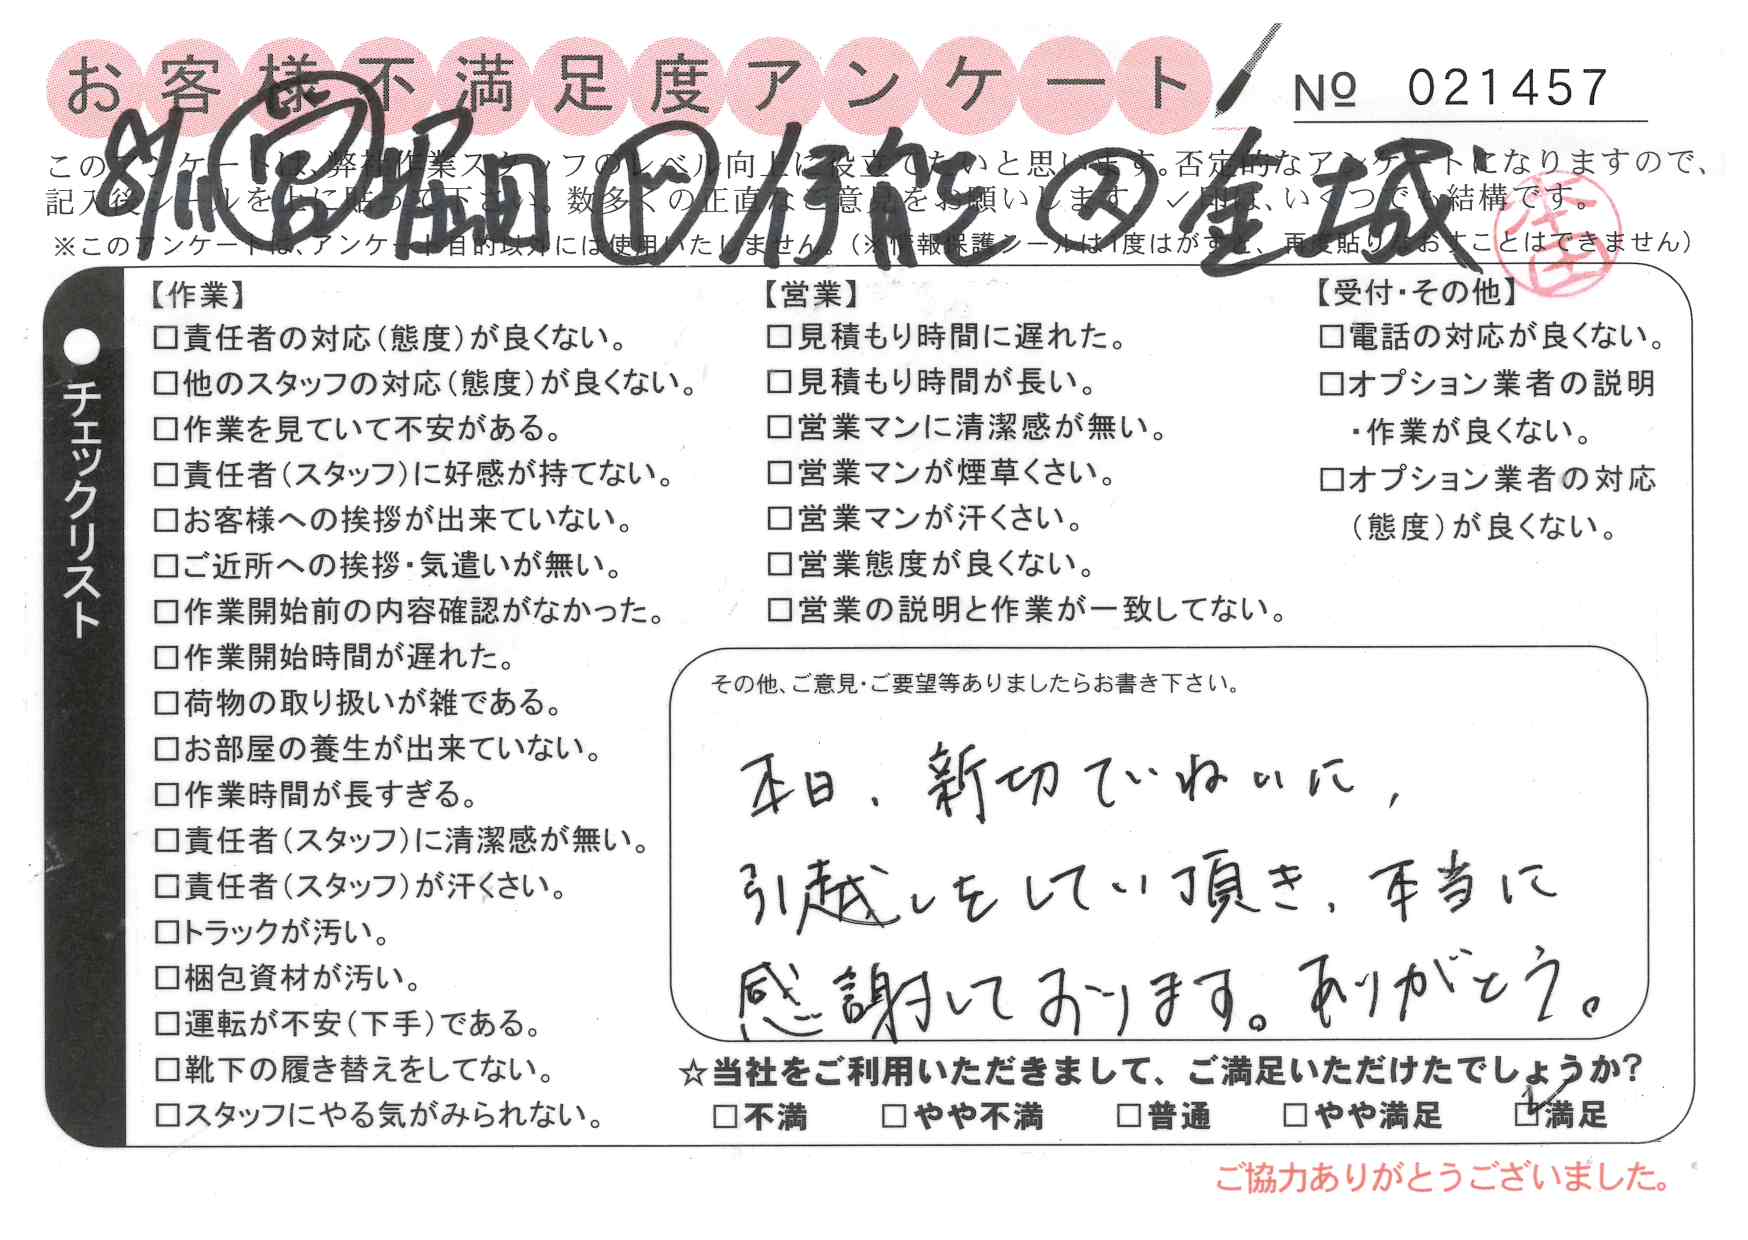 お客様不満足度アンケート
№ 021457
8/11 営 堀田 ド 伊能 ス 金城
このアンケートは、弊社作業スタッフのレベル向上に役立てたいと思います。否定的なアンケートになりますので、
記入後シールを上に貼って下さい。数多くの正直なご意見をお願いします。✓印は、いくつでも結構です。
※このアンケートは、アンケート目的以外には使用いたしません。(※情報保護シールは1度はがすと、再度貼りなおすことはできません)
●チェックリスト
【作業】
□責任者の対応(態度)が良くない。
□他のスタッフの対応(態度)が良くない。
□作業を見ていて不安がある。
□責任者(スタッフ)に好感が持てない。
□お客様への挨拶が出来ていない。
□ご近所への挨拶・気遣いが無い。
□作業開始前の内容確認がなかった。
□作業開始時間が遅れた。
□荷物の取り扱いが雑である。
□お部屋の養生が出来ていない。
□作業時間が長すぎる。
□責任者(スタッフ)に清潔感が無い。
□責任者(スタッフ)が汗くさい。
□トラックが汚い。
□梱包資材が汚い。
□運転が不安(下手)である。
□靴下の履き替えをしてない。
□スタッフにやる気がみられない。
【営業】
□見積もり時間に遅れた。
□見積もり時間が長い。
□営業マンに清潔感が無い。
□営業マンが煙草くさい。
□営業マンが汗くさい。
□営業態度が良くない。
□営業の説明と作業が一致してない。
【受付・その他】
□電話の対応が良くない。
□オプション業者の説明
・作業が良くない。
□オプション業者の対応
(態度)が良くない。
その他、ご意見・ご要望等ありましたらお書き下さい。
本日、新切ていねいに、
引越しをしてい頂き、本当に
感謝しております。ありがとう。
☆当社をご利用いただきまして、ご満足いただけたでしょうか?
□不満 □やや不満 □普通 □やや満足 ☑満足
ご協力ありがとうございました。